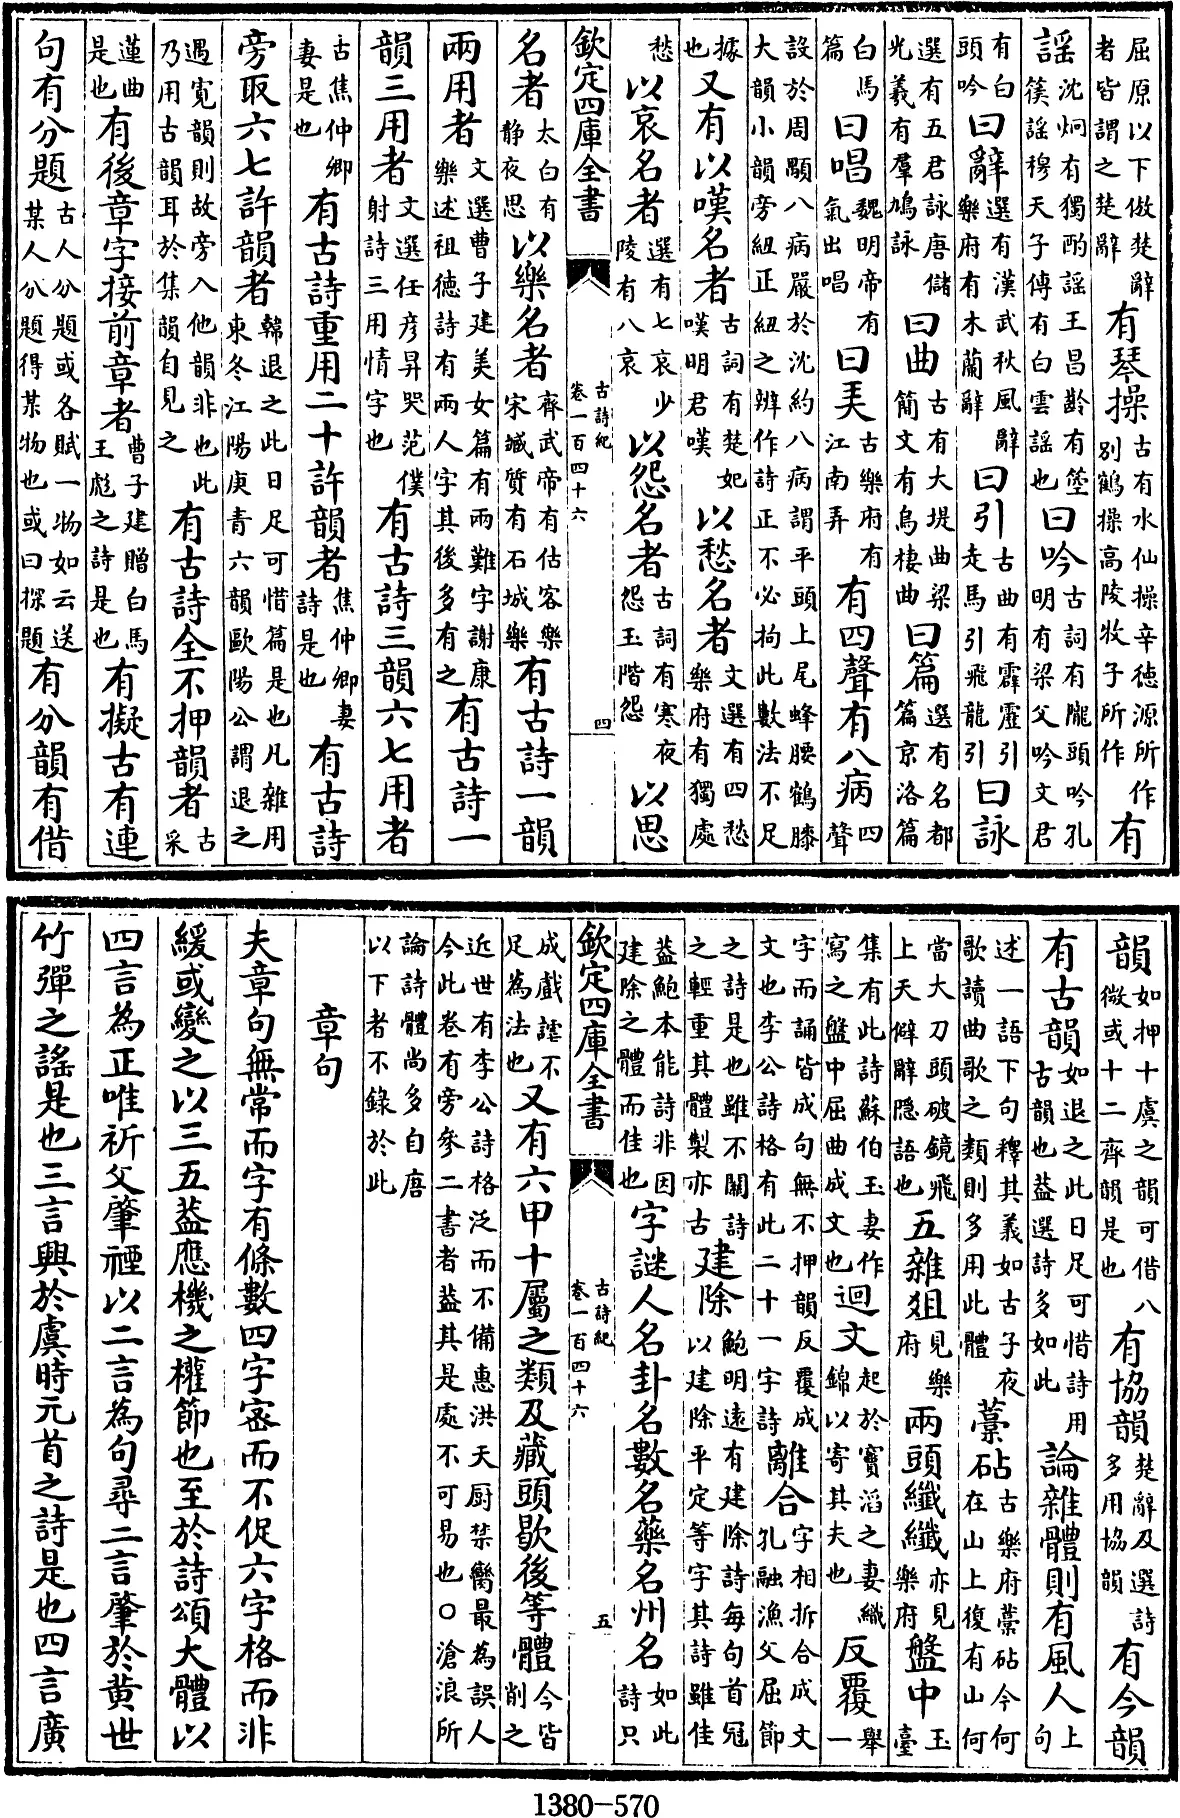 屈原以下倣楚辭者皆謂之楚辭有琴操古有水仙操辛徳源所作别鶴操高陵牧子所作有
謡沈炯有獨酌謡王昌齡有箜篌謡穆天子傳有白雲謡也曰吟古詞有隴頭吟孔明有梁父吟文君
有白頭吟曰辭選有漢武秋風辭樂府有木蘭辭曰引古曲有霹靂引走馬引飛龍引曰詠
選有五君詠唐儲光羲有羣鳩詠曰曲古有大堤曲梁簡文有烏棲曲曰篇選有名都篇京洛篇
白馬篇曰唱魏明帝有氣出唱曰弄古樂府有江南弄有四聲有八病四聲
設於周顒八病嚴於沈約八病謂平頭上尾蜂腰鶴膝大韻小韻旁紐正紐之辨作詩正不必拘此數法不足
據也又有以嘆名者古詞有楚妃嘆明君嘆以愁名者文選有四愁樂府有獨處
愁以哀名者選有七哀少陵有八哀以怨名者古詞有寒夜怨玉階怨以思
欽定四庫全書 古詩紀卷一百四十六 四
名者太白有静夜思以樂名者齊武帝有估客樂宋臧質有石城樂有古詩一韻
兩用者文選曹子建美女篇有兩難字謝康樂述祖徳詩有兩人字其後多有之有古詩一
韻三用者文選任彦昇哭范僕射詩三用情字也有古詩三韻六七用者
古焦仲卿妻是也有古詩重用二十許韻者焦仲卿妻詩是也有古詩
旁取六七許韻者韓退之此日足可惜篇是也凡雜用東冬江陽庚青六韻歐陽公謂退之
遇寛韻則故旁入他韻非也此乃用古韻耳於集韻自見之有古詩全不押韻者古采
蓮曲是也有後章字接前章者曹子建贈白馬王彪之詩是也有擬古有連
句有分題古人分題或各賦一物如云送某人分題得某物也或曰探題有分韻有借
韻如押十虞之韻可借八微或十二齊韻是也有協韻楚辭及選詩多用協韻有今韻
有古韻如退之此日足可惜詩用古韻也葢選詩多如此論雜體則有風人上句
述一語下句釋其義如古子夜歌讀曲歌之類則多用此體藁砧古樂府藁砧今何在山上復有山何
當大刀頭破鏡飛上天僻辭隠語也五雜俎見樂府兩頭纖纖亦見樂府盤中玉臺
集有此詩蘇伯玉妻作寫之盤中屈曲成文也廻文起於竇滔之妻織錦以寄其夫也反覆舉一
字而誦皆成句無不押韻反覆成文也李公詩格有此二十一字詩離合字相折合成文孔融漁父屈節
之詩是也雖不關詩之輕重其體製亦古建除鮑明遠有建除詩每句首冠以建除平定等字其詩雖佳
葢鮑本能詩非因建除之體而佳也字謎人名卦名數名藥名州名如此詩只
欽定四庫全書 古詩紀卷一百四十六 五
成戲謔不足為法也又有六甲十屬之類及藏頭歇後等體今皆削之
近世有李公詩格泛而不備惠洪天厨禁臠最為誤人今此卷有旁參二書者葢其是處不可易也○滄浪所
論詩體尚多自唐以下者不錄於此
章句
夫章句無常而字有條數四字宻而不促六字格而非
緩或變之以三五葢應機之權節也至於詩頌大體以
四言為正唯祈父肇禋以二言為句尋二言肇於黄世
竹彈之謡是也三言興於虞時元首之詩是也四言廣
1380-570